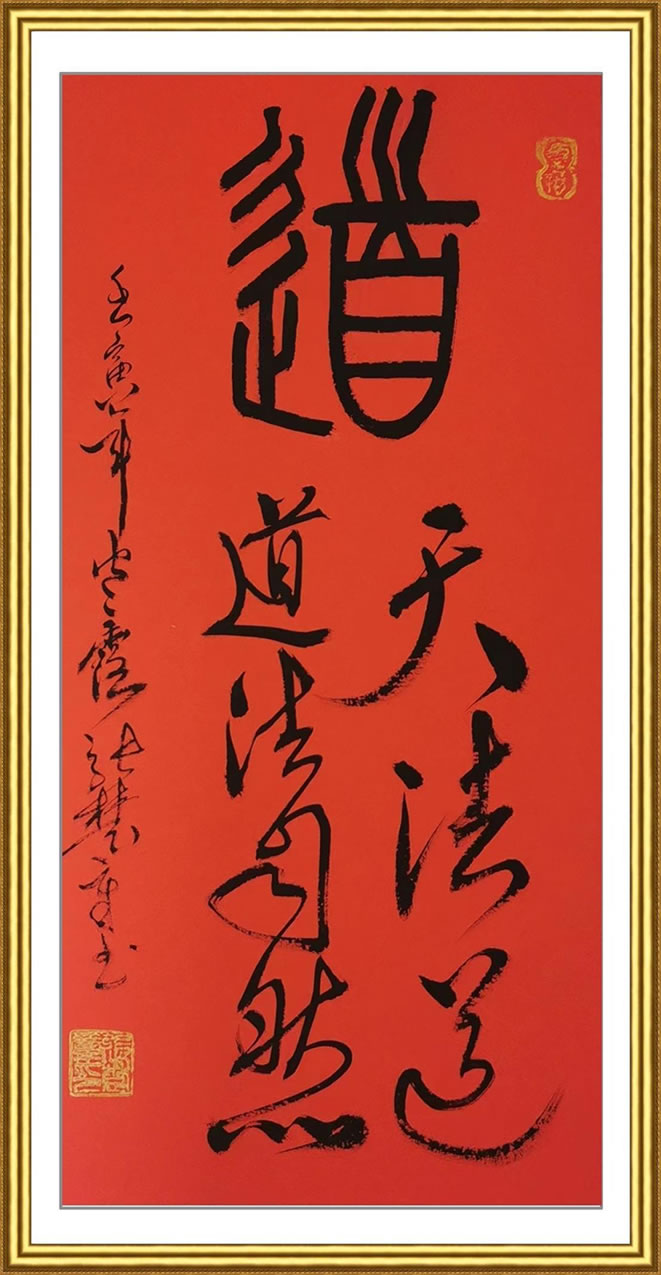 道
天法道
道法自然
壬寅年